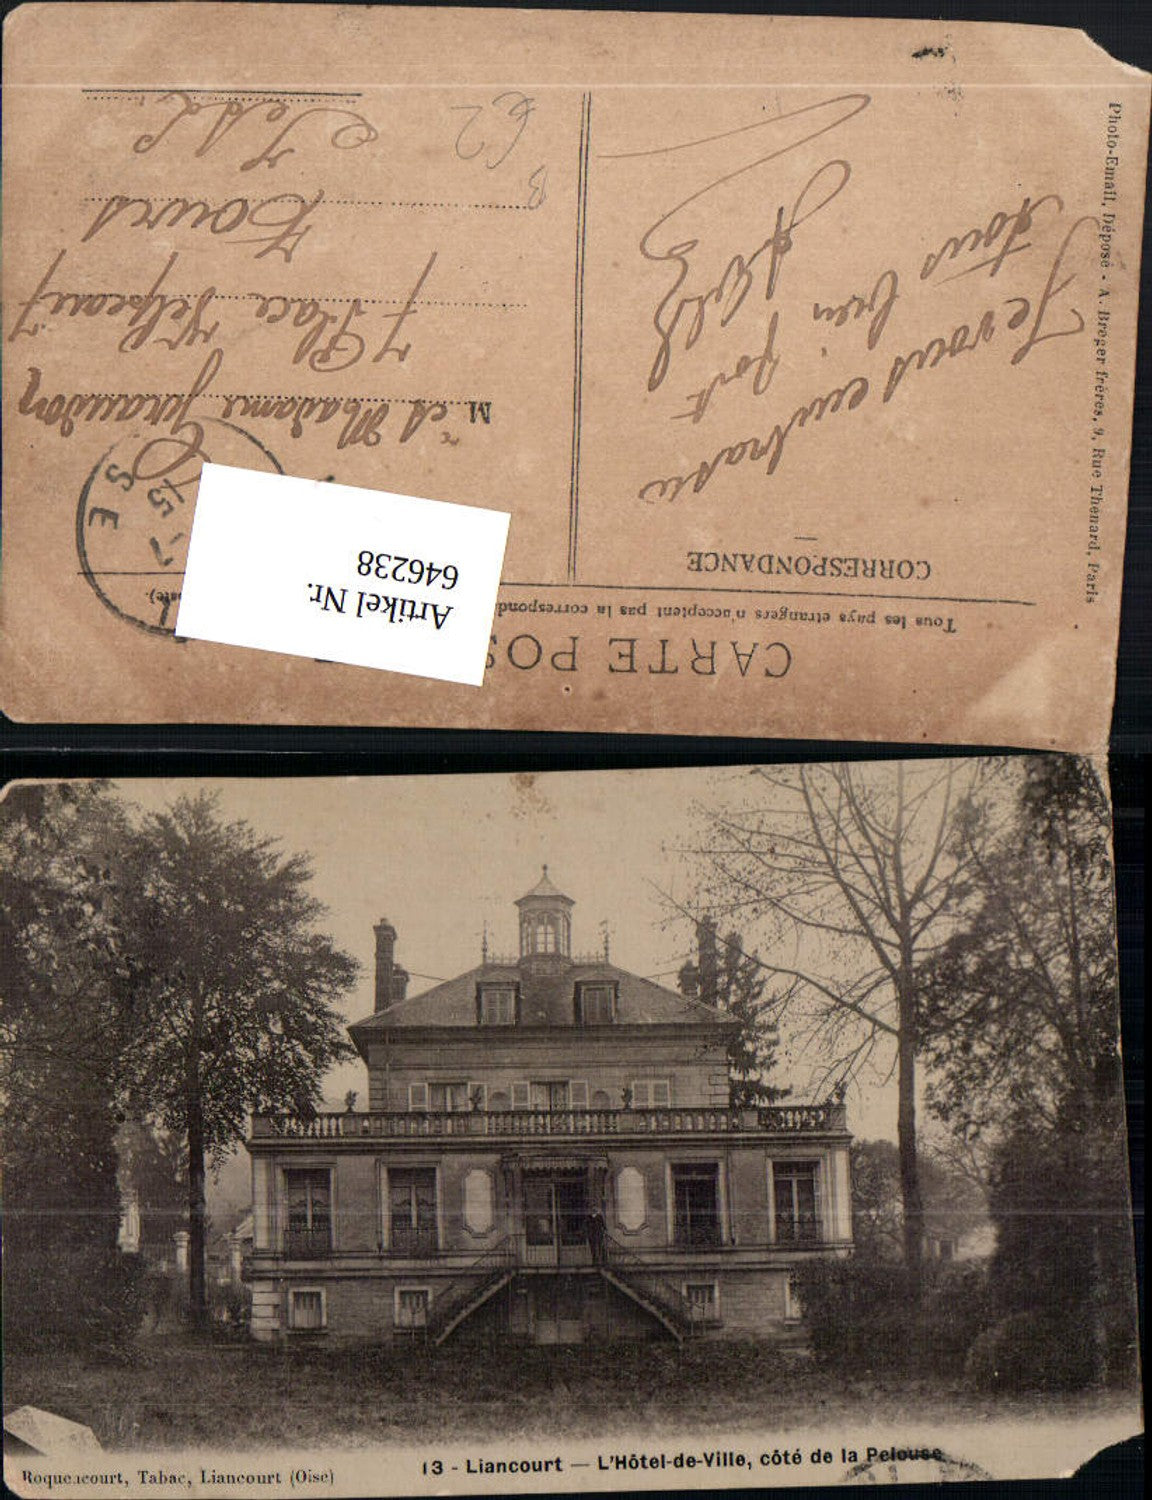 CARTE POS
Tous les pays étrangers n'acceptent pas la correspond
CORRESPONDANCE
Je vous
tous bien
Photo-Email, Déposé - A. Breger frères, 9, Rue Thénard, Paris
Artikel Nr.
646238
S E
7
15
M. et Madame Giraudon
7 Place Velpeau 7
Tours
I et L
B
62
13 - Liancourt — L'Hôtel-de-Ville, côté de la Pelouse
Roquencourt, Tabac, Liancourt (Oise)